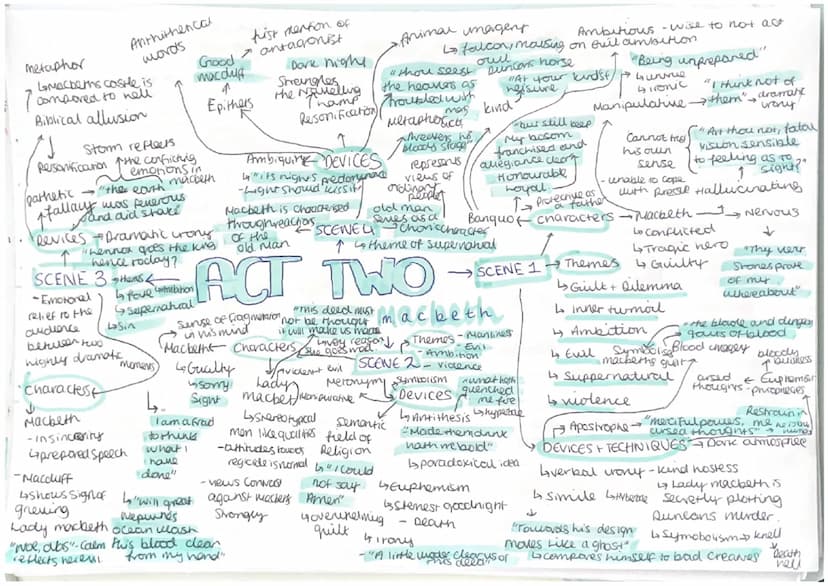 metaphor
↳ macbeths castle is
compared to hell
Biblical allusion
Antithetical
words
Good
macduff
Epithets
first mention of
antagonist
Dark night
Strangles
the travelling
lamp
Personification
Animal imagery
↳ falcon, mousing
owl
Duncans horse
"thou seest
the heavens as
troubled with
mans
act
Metaphorical
Threatens his
bloody stage"
Ambitious - wise to not act
on evil ambition
"At your kindst
leisure"
kind
"Being unprepared"
↳ untrue
↳ ironic
Manipulative
"I think not of
them" → dramatic
irony
"but still keep
my bosom
franchised and
allegiance clear"
Honourable
Loyal
Protective as
a father
Cannot trust his
own
sense
- unable to cope
with pressure
"Art thou not, fatal
vision sensible
to feeling as to
sight?"
Hallucinating
Banquo ← characters → Macbeth → Nervous
↳ Conflicted
↳ Tragic hero
↳ Guilty
"Thy very
stones prate
of my
whereabout"
Storm reflects
the conflicting
emotions in
macbeth
Personification
pathetic
fallacy
"the earth
was feverous
and did shake"
Devices → Dramatic irony
"hence goes the king
hence today?"
Ambiguity ← DEVICES
↳ "is't night's predominance"
- Light should kiss it
Macbeth is characterised
through reactions
of the
old man
SCENE 4
represents
views of
ordinary
people
old man
serves as a
chorus character
↳ theme of supernatural
SCENE 3 → themes
↳ Power + ambition
↳ Supernatural
↳ Sin
- Emotional
relief to the
audience
between two
highly dramatic
moments
ACT TWO
macbeth
SCENE 1 → Themes
↳ Guilt + Dilemma
↳ Inner turmoil
↳ Ambition
↳ Evil
↳ Suppernatural
↳ violence
"the blade and dudgeon
gouts of blood
Symbolises
macbeths guilt
Blood imagery
cursed
thoughts
Euphemism
bloody
business
Apostrophe → "merciful powers, me
cursed thoughts"
DEVICES + TECHNIQUES → Dark atmosphere
↳ verbal irony - kind hostess
↳ Lady macbeth is
secretly plotting
Duncans murder.
↳ simile
"Towards his design
moves like a ghost"
↳ compares himself to bad creatures
↳ Symbolism → knell
Death
hell
"this deed must
not be thought
it will make us mad"
Sense of fragmentation
in his mind
Macbeth ← Characters
↳ Guilty
↳ sorry
sight
Lady
macbeth
↳ Stereotypical
men like qualities
- attitudes towards
regicide is normal
- views contrast
against macbeths
strongly
SCENE 2
Themes - Manliness
- Evil
- Ambition
- violence
Metonymy
Symbolism
Devices
"what hath
quenched
me fire
↳ Antithesis
"Made them drunk
hath me bold"
↳ paradoxical idea
Semantic
field of
Religion
↳ "I could
not say
Amen"
↳ overwhelming
guilt
↳ Euphemism
↳ Sternest goodnight
- Death
↳ irony
- "A little water clears us of
this deed"
Characters
Macbeth
- insincerity
↳ prepared speech
- Macduff
↳ shows sign of
grieving
Lady macbeth
"Woe, alas" - calm
reflects herself
"I am afraid
to think
what I
have
done"
↳ "will great
Neptunes
ocean wash
this blood clean
from my hand"